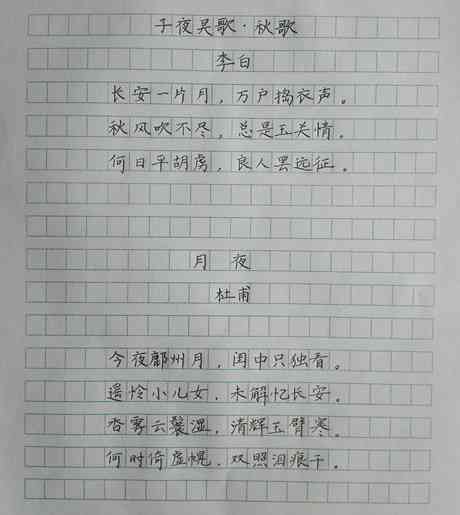 子夜吴歌·秋歌
李白
长安一片月，万户捣衣声。
秋风吹不尽，总是玉关情。
何日平胡虏，良人罢远征。
月 夜
杜甫
今夜鄜州月，闺中只独看。
遥怜小儿女，未解忆长安。
香雾云鬟湿，清辉玉臂寒。
何时倚虚幌，双照泪痕干。